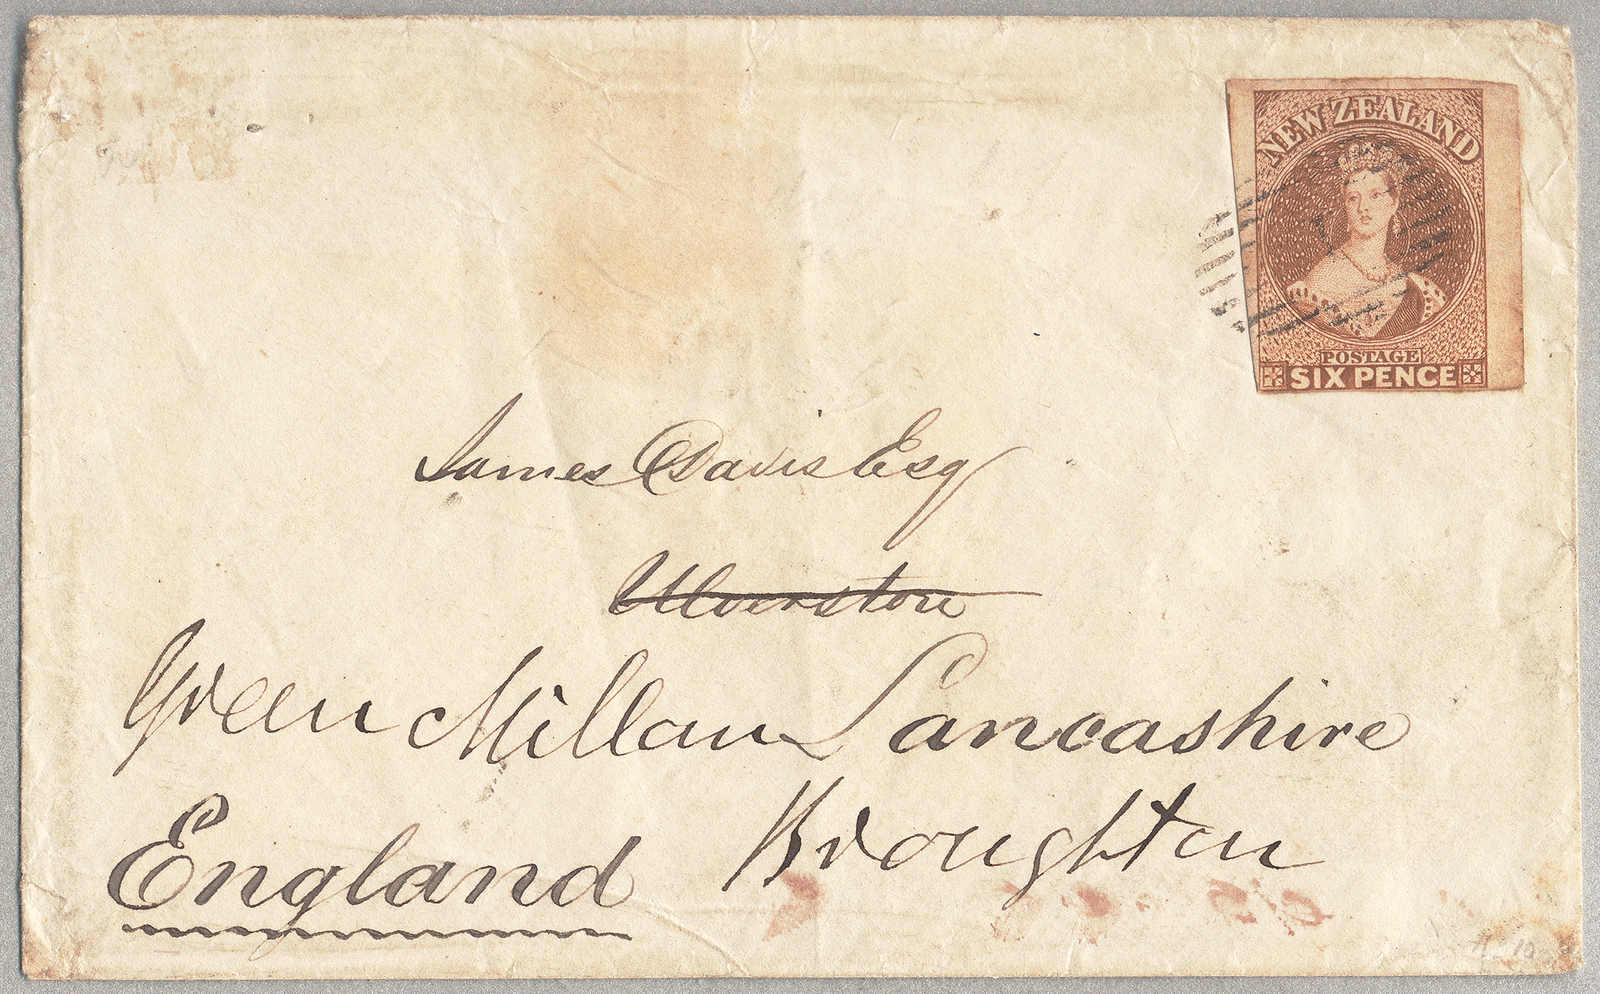 NEW ZEALAND
POSTAGE
SIX PENCE
James Davis Esq
Ulverston
Green Millan Lancashire
England Broughton